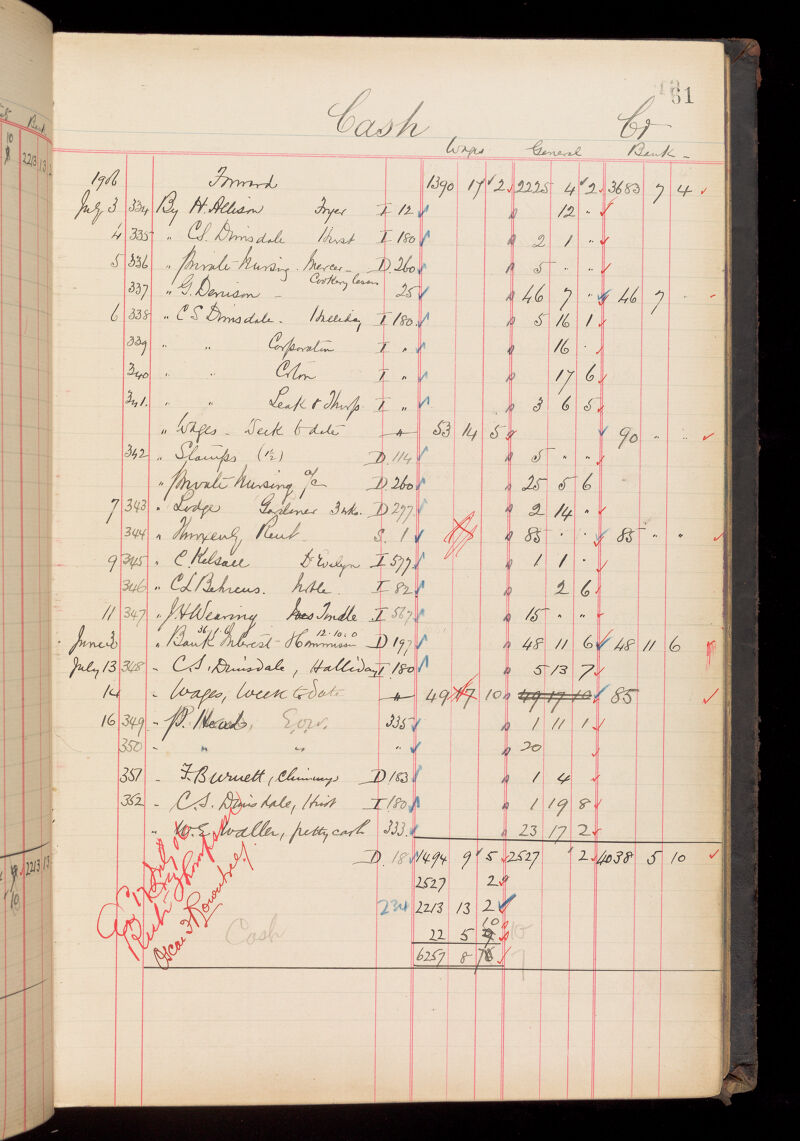 61
Cash Cr
Wages General Bank
1906 Forward 1390 17 2 2225 4 2 3683 7 4
July 3 334 By H. Allison Fryer I 12 12 "
4 335 " C.S. Dimsdale Hirst I 180 2 1 "
5 336 " Private Nursing. Mercer D 260 5 " "
Cookery
337 " G. Denison 25 46 7 " 46 7
6 338 " C S Dimsdale. Halliday I 180 5 16 1
339 " " Corporation I " 16
340 " " I " 17 6
341. " " Leak & Thorp I " 3 6 5
" Wages - Week to date 53 14 5 90 " "
342 " Stamps (1/2) D. 114 5 " "
" Private Nursing a/c D. 260 25 5 6
7 343 " Lodge Gardener 3 wks. D 277 2 14 "
344 " Rent S. 1 85 85 " "
9 345 " C. Kelsall Dr Evelyn I 577 1 1
346 " C L Behrens. Noble I 82 2 6
11 347 " J H Wearing Tindle I 567 15 " "
June 3 " Bank Interest 36/1 Commission 12.10.0 D 197 48 11 6 48 11 6
July 13 348 - C. S. Dimsdale, Halliday I 180 5 13 7
14 - Wages, Week to date " 49 17 10 49 17 10 85
16 349 - P. 335 1 11 1
350 - " " " 20
351 - F. Burnett, Chimneys D 153 1 4
352 - C. S. Dimsdale, Hirst I 180 1 19 8
" W. E. Waller, petty cash 333 23 17 2
D. 18 1494 9 5 2527 2 4038 5 10
2527 2
234 2213 13 2
10
22 5 9 10
6257 8 7
Ex 17 July 06
Ruth Thompson
Oscar F Rowntree
Cash
10
2213 13
Bank
2213 13